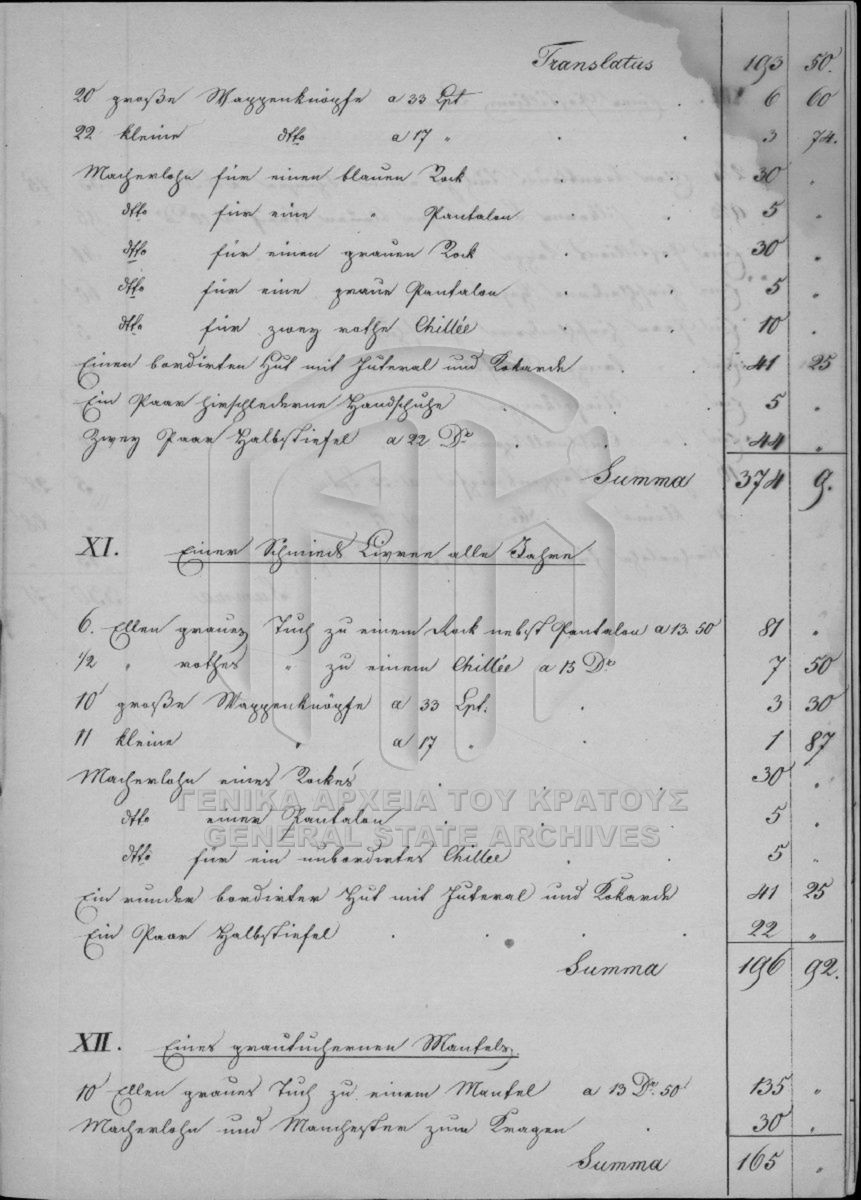 Translatus 193 50.
20 große Wappenknöpfe a 33 Lpt . . 6 60
22 kleine dtto a 17 „ . . 3 74.
Macherlohn für einen blauen Rock . . 30 .
dtto für eine „ Pantalon . . 5 .
dtto für einen grauen Rock . . 30 „
dtto für eine graue Pantalon . . 5 „
dtto für zwey rothe Chillée . . 10 .
Einen bordirten Hut mit Futeral und Kokarde . . 41 25
Ein Paar hirschlederne Handschuhe . . . 5 „
Zwey Paar Halbstiefel a 22 Dr . . . 44 „
Summa 374 9.
XI. Einer Schmieds Livree alle Jahre
6. Ellen graues Tuch zu einem Rock nebst Pantalon a 13. 50 81 „
1/2 „ rothes „ zu einem Chillée a 15 Dr 7 50
10 große Wappenknöpfe a 33 Lpt. . 3 30
11 kleine „ a 17 „ . 1 87
Macherlohn eines Rockes . . . 30 „
dtto einer Pantalon . . . 5 .
dtto für ein unbordirtes Chillée . . 5 „
Ein runder bordirter Hut mit Futeral und Kokarde 41 25
Ein Paar Halbstiefel . . . . 22 „
Summa 196 92.
XII. Eines grautuchernen Mantels
10 Ellen graues Tuch zu einem Mantel a 13 Dr. 50 135 „
Macherlohn und Manchester zum Kragen . 30 „
Summa 165 „
ΓΕΝΙΚΑ ΑΡΧΕΙΑ ΤΟΥ ΚΡΑΤΟΥΣ
GENERAL STATE ARCHIVES